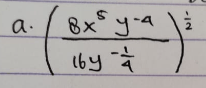 a. (8x⁵ y⁻⁴ / 16y^(-1/4))^(1/2)